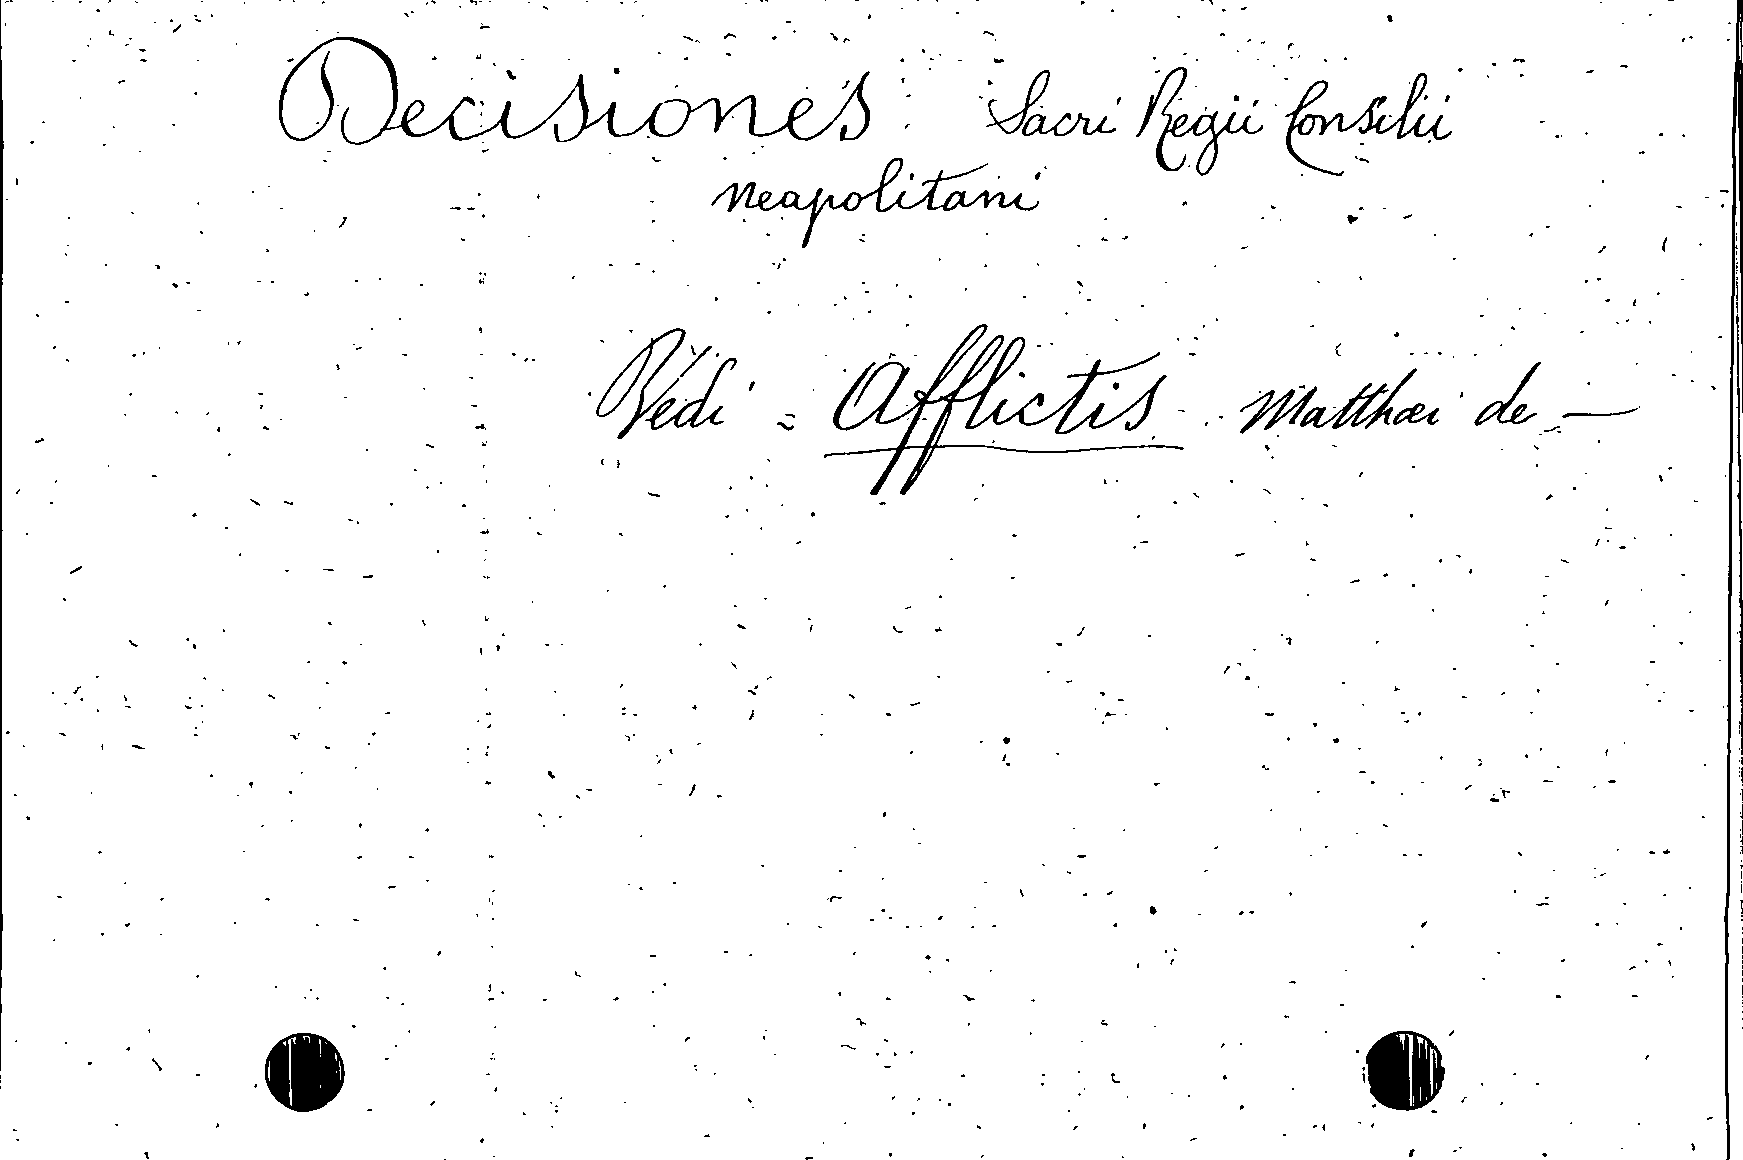 Decisiones Sacri Regii Consilii
neapolitani
Vedi = Afflictis Matthæi de —